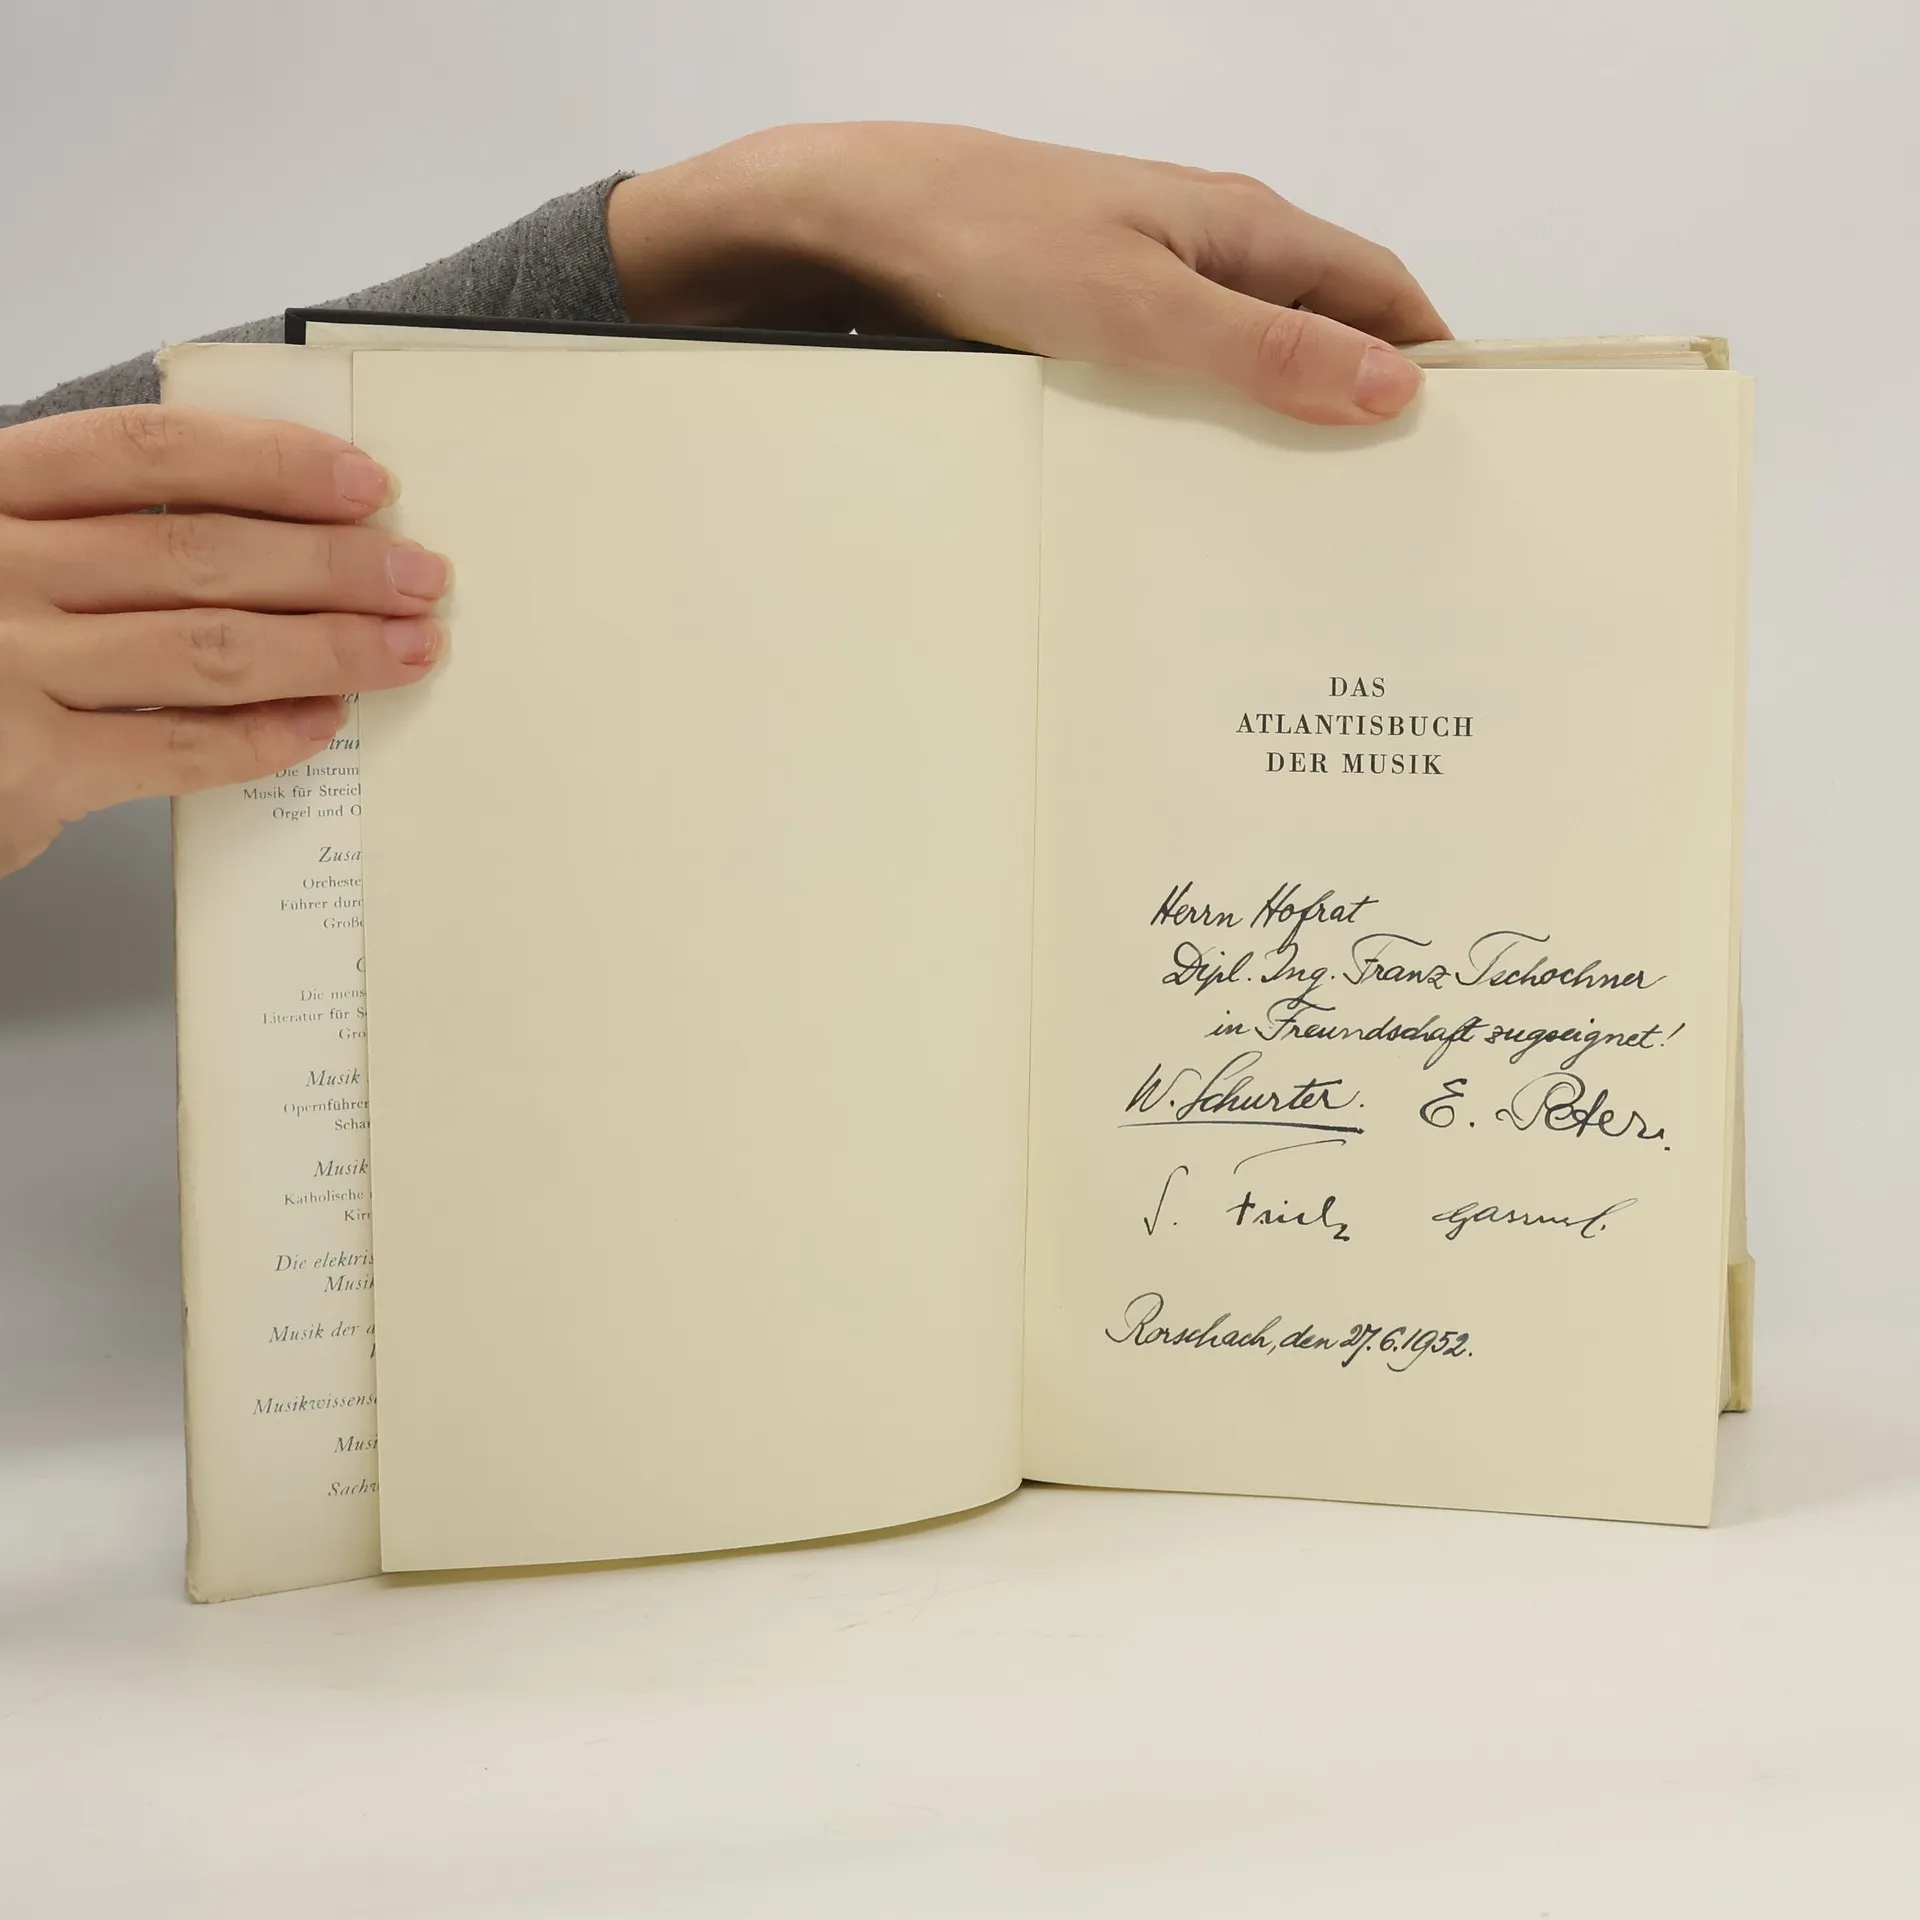 Die Instrum
Musik für Streich
Orgel und O
Zusa
Orcheste
Führer durc
Große
Die mens
Literatur für S
Gro
Musik
Opernführer
Scha
Musik
Katholische
Kirc
Die elektris
Musik
Musik der a
Musikwissens
Musi
Sachw
DAS
ATLANTISBUCH
DER MUSIK
Herrn Hofrat
Dipl. Ing. Franz Tschochner
in Freundschaft zugeeignet!
W. Schurter. E. Peter.
Rorschach, den 27.6.1952.